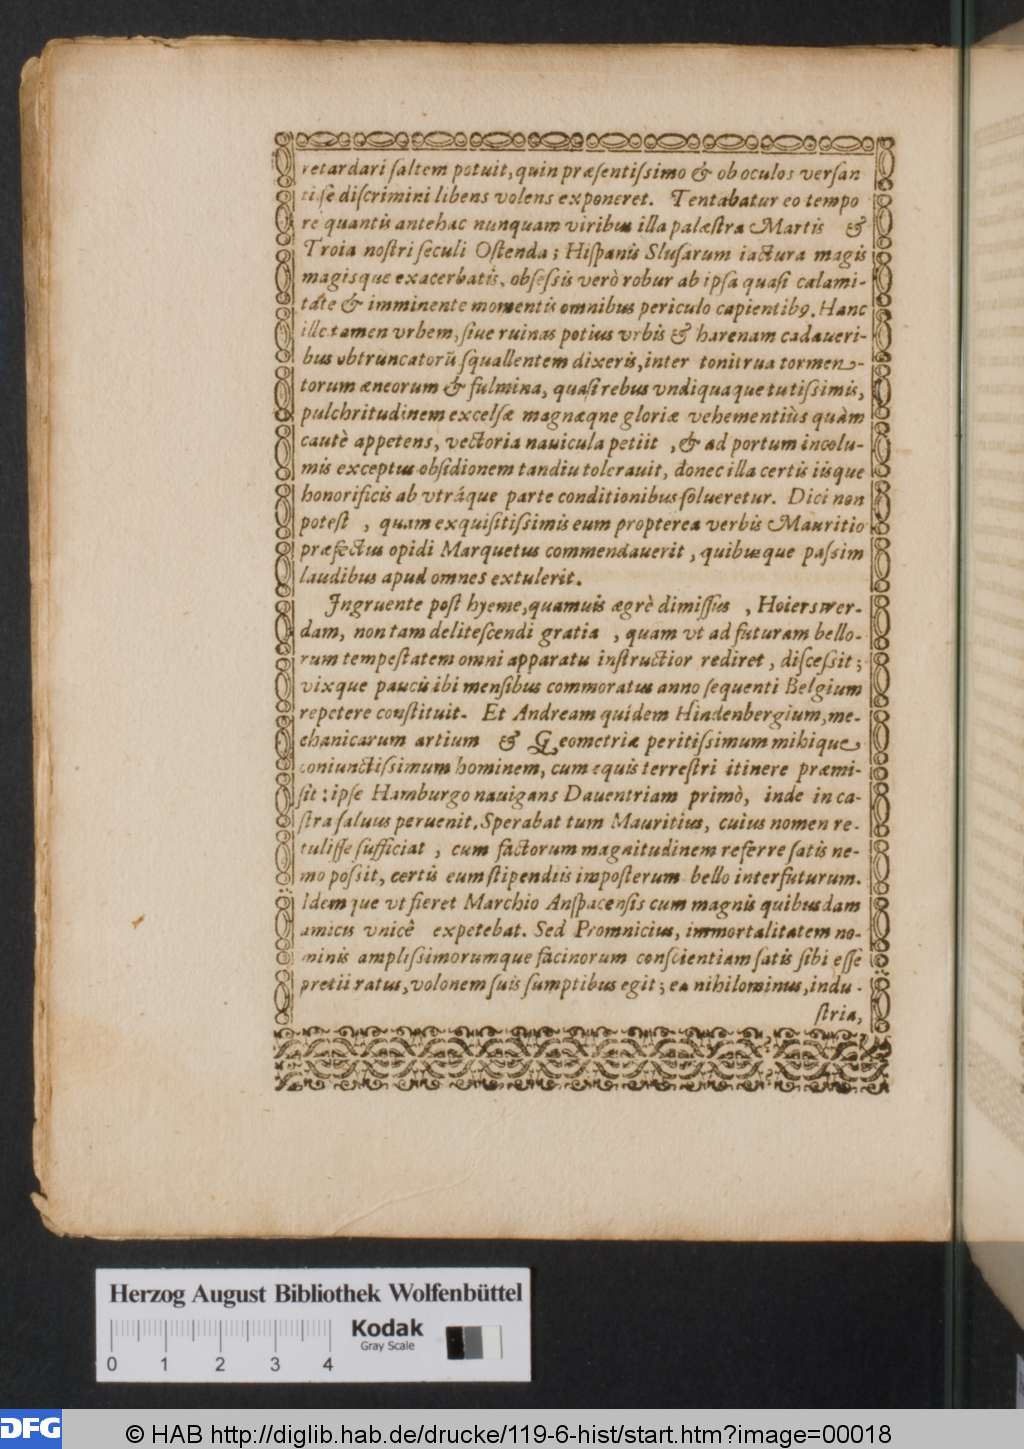 retardari ſaltem potuit, quin præſentiſsimo & ob oculos verſan
tiſe diſcrimini libens volens exponeret. Tentabatur eo tempo
re quantis antehac nunquam viribus illa palæſtra Martis &
Troia noſtri ſeculi Oſtenda; Hiſpanis Sluſarum iactura magis
magisque exacerbatis, obſeſsis verò robur ab ipſa quaſi calami-
tate & imminente momentis omnibus periculo capientibꝰ. Hanc
ille tamen vrbem, ſiue ruinas potius vrbis & harenam cadaueri-
bus obtruncatorũ ſquallentem dixeris, inter tonitrua tormen-
torum æneorum & fulmina, quaſi rebus vndiquaque tutiſsimis,
pulchritudinem excelſæ magnæqne gloriæ vehementiùs quàm
cautè appetens, vectoria nauicula petiit, & ad portum incolu-
mis exceptus obſidionem tandiu tolerauit, donec illa certis iisque
honorificis ab vtráque parte conditionibus ſolueretur. Dici non
poteſt, quam exquiſitiſsimis eum propterea verbis Mauritio
præfectus opidi Marquetus commendauerit, quibusque paſsim
laudibus apud omnes extulerit.
Ingruente poſt hyeme, quamuis ægrè dimiſſus, Hoierswer-
dam, non tam deliteſcendi gratia, quam vt ad futuram bello-
rum tempeſtatem omni apparatu inſtructior rediret, diſceſsit;
vixque paucis ibi menſibus commoratus anno ſequenti Belgium
repetere conſtituit. Et Andream quidem Hindenbergium, me-
chanicarum artium & Geometriæ peritiſsimum mihique
coniunctiſsimum hominem, cum equis terreſtri itinere præmi-
ſit: ipſe Hamburgo nauigans Dauentriam primò, inde in ca-
ſtra ſaluus peruenit. Sperabat tum Mauritius, cuius nomen re-
tuliſſe ſufficiat, cum factorum magnitudinem referre ſatis ne-
mo poſsit, certis eum ſtipendiis impoſterum bello interfuturum.
Idemque vt fieret Marchio Anſpacenſis cum magnis quibusdam
amicis vnicè expetebat. Sed Promnicius, immortalitatem no-
minis ampliſsimorumque facinorum conſcientiam ſatis ſibi eſſe
pretii ratus, volonem ſuis ſumptibus egit; ea nihilominus, indu-
ſtria,
Herzog August Bibliothek Wolfenbüttel
Kodak
Gray Scale
0 1 2 3 4
DFG © HAB http://diglib.hab.de/drucke/119-6-hist/start.htm?image=00018